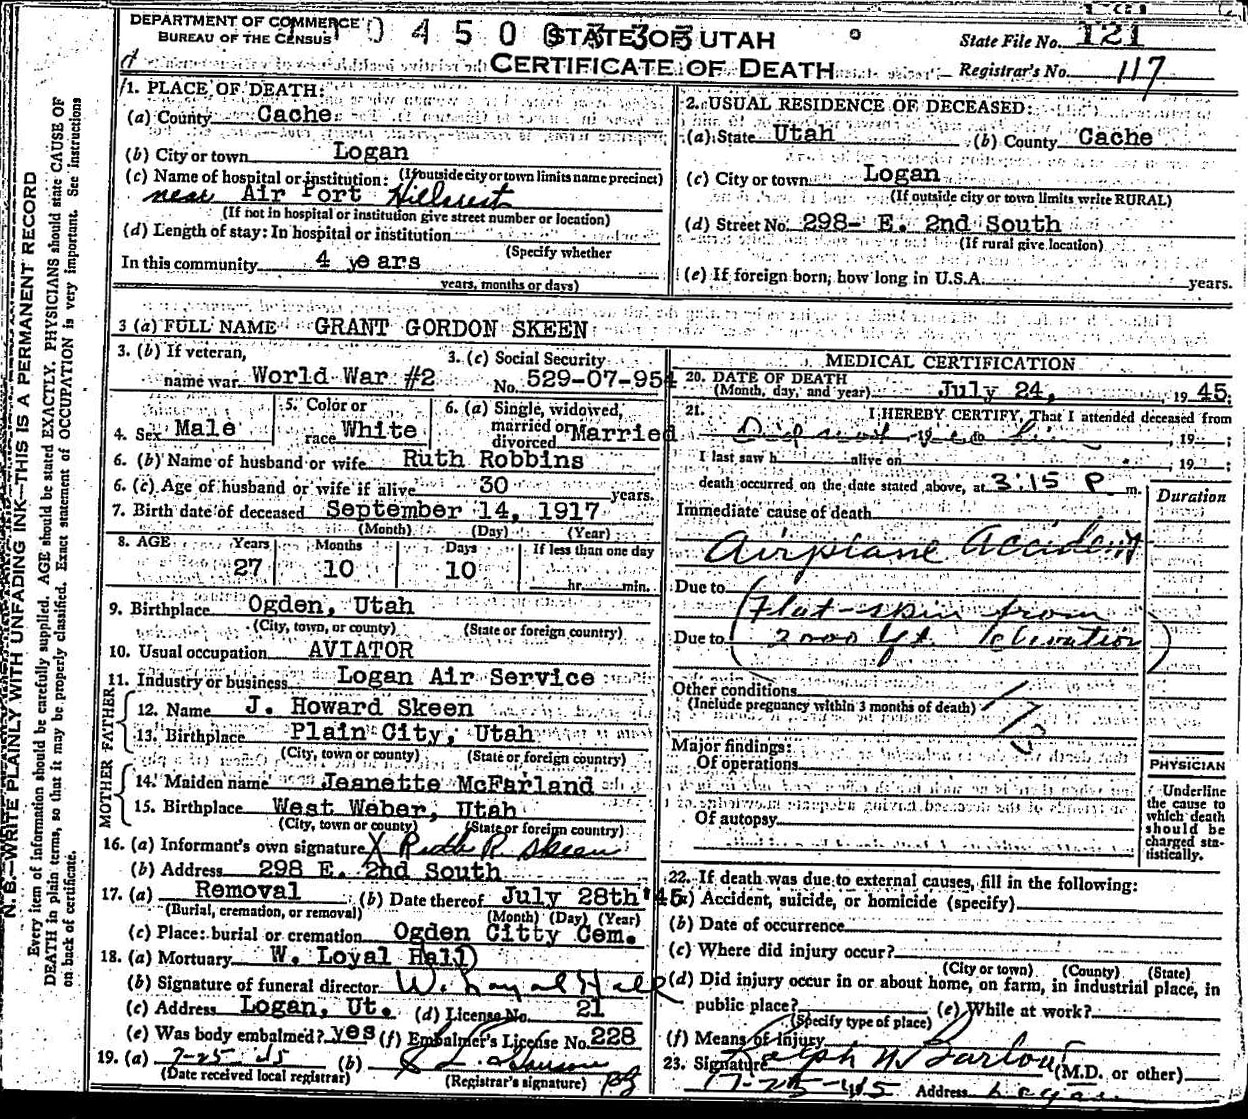 DEPARTMENT OF COMMERCE
BUREAU OF THE CENSUS
0 4 5 0 0 3 3 5
STATE OF UTAH
CERTIFICATE OF DEATH
State File No. 121
Registrar's No. 117
N. B.—WRITE PLAINLY WITH UNFADING INK—THIS IS A PERMANENT RECORD
Every item of information should be carefully supplied. AGE should be stated EXACTLY. PHYSICIANS should state CAUSE OF
DEATH in plain terms, so that it may be properly classified. Exact statement of OCCUPATION is very important. See instructions
on back of certificate.
1. PLACE OF DEATH:
(a) County Cache
(b) City or town Logan
(If outside city or town limits name precinct)
(c) Name of hospital or institution:
near Air Port Hillcrest
(If not in hospital or institution give street number or location)
(d) Length of stay: In hospital or institution
(Specify whether
In this community 4 years
years, months or days)
2. USUAL RESIDENCE OF DECEASED:
(a) State Utah (b) County Cache
(c) City or town Logan
(If outside city or town limits write RURAL)
(d) Street No. 298- E. 2nd South
(If rural give location)
(e) If foreign born, how long in U.S.A. years.
3 (a) FULL NAME GRANT GORDON SKEEN
3. (b) If veteran, name war World War #2
3. (c) Social Security No. 529-07-954
4. Sex Male
5. Color or race White
6. (a) Single, widowed, married or divorced Married
6. (b) Name of husband or wife Ruth Robbins
6. (c) Age of husband or wife if alive 30 years.
7. Birth date of deceased September 14, 1917
(Month) (Day) (Year)
8. AGE Years Months Days If less than one day
27 10 10 hr. min.
9. Birthplace Ogden, Utah
(City, town, or county) (State or foreign country)
10. Usual occupation AVIATOR
11. Industry or business Logan Air Service
FATHER
12. Name J. Howard Skeen
13. Birthplace Plain City, Utah
(City, town or county) (State or foreign country)
MOTHER
14. Maiden name Jeanette McFarland
15. Birthplace West Weber, Utah
(City, town or county) (State or foreign country)
16. (a) Informant's own signature X Ruth R Skeen
(b) Address 298 E. 2nd South
17. (a) Removal (b) Date thereof July 28th '45
(Burial, cremation, or removal) (Month) (Day) (Year)
(c) Place: burial or cremation Ogden Citty Cem.
18. (a) Mortuary W. Loyal Hall
(b) Signature of funeral director W. Loyal Hall
(c) Address Logan, Ut. (d) License No. 21
(e) Was body embalmed? yes (f) Embalmer's License No. 228
19. (a) 7-25-45 (b)
(Date received local registrar) (Registrar's signature)
MEDICAL CERTIFICATION
20. DATE OF DEATH
(Month, day, and year) July 24, 1945
21. I HEREBY CERTIFY, That I attended deceased from
Did not him , 19 ;
I last saw h alive on , 19 ;
death occurred on the date stated above, at 3:15 P m.
Duration
Immediate cause of death
Airplane Accident
Due to (Flat-spin from
Due to 2000 ft. elevation)
Other conditions
(Include pregnancy within 3 months of death)
Major findings:
Of operations
Of autopsy
PHYSICIAN
Underline
the cause to
which death
should be
charged sta-
tistically.
22. If death was due to external causes, fill in the following:
(a) Accident, suicide, or homicide (specify)
(b) Date of occurrence
(c) Where did injury occur?
(City or town) (County) (State)
(d) Did injury occur in or about home, on farm, in industrial place, in
public place? (e) While at work?
(Specify type of place)
(f) Means of injury
23. Signature Ralph N Barlow (M.D. or other)
7-25-45 Address Logan